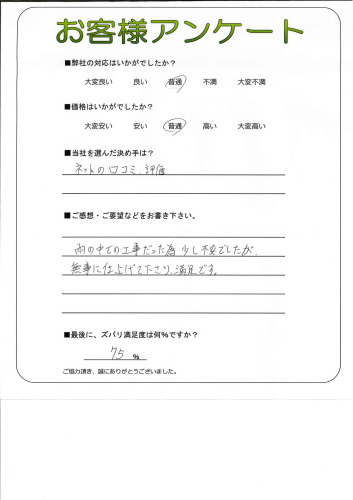 お客様アンケート
■弊社の対応はいかがでしたか？
大変良い 良い 普通 不満 大変不満
■価格はいかがでしたか？
大変安い 安い 普通 高い 大変高い
■当社を選んだ決め手は？
ネットの口コミ、評価
■ご感想・ご要望などをお書き下さい。
雨の中での工事だった為 少し不安でしたが、
無事に仕上げて下さり、満足です。
■最後に、ズバリ満足度は何%ですか？
75 %
ご協力頂き、誠にありがとうございました。